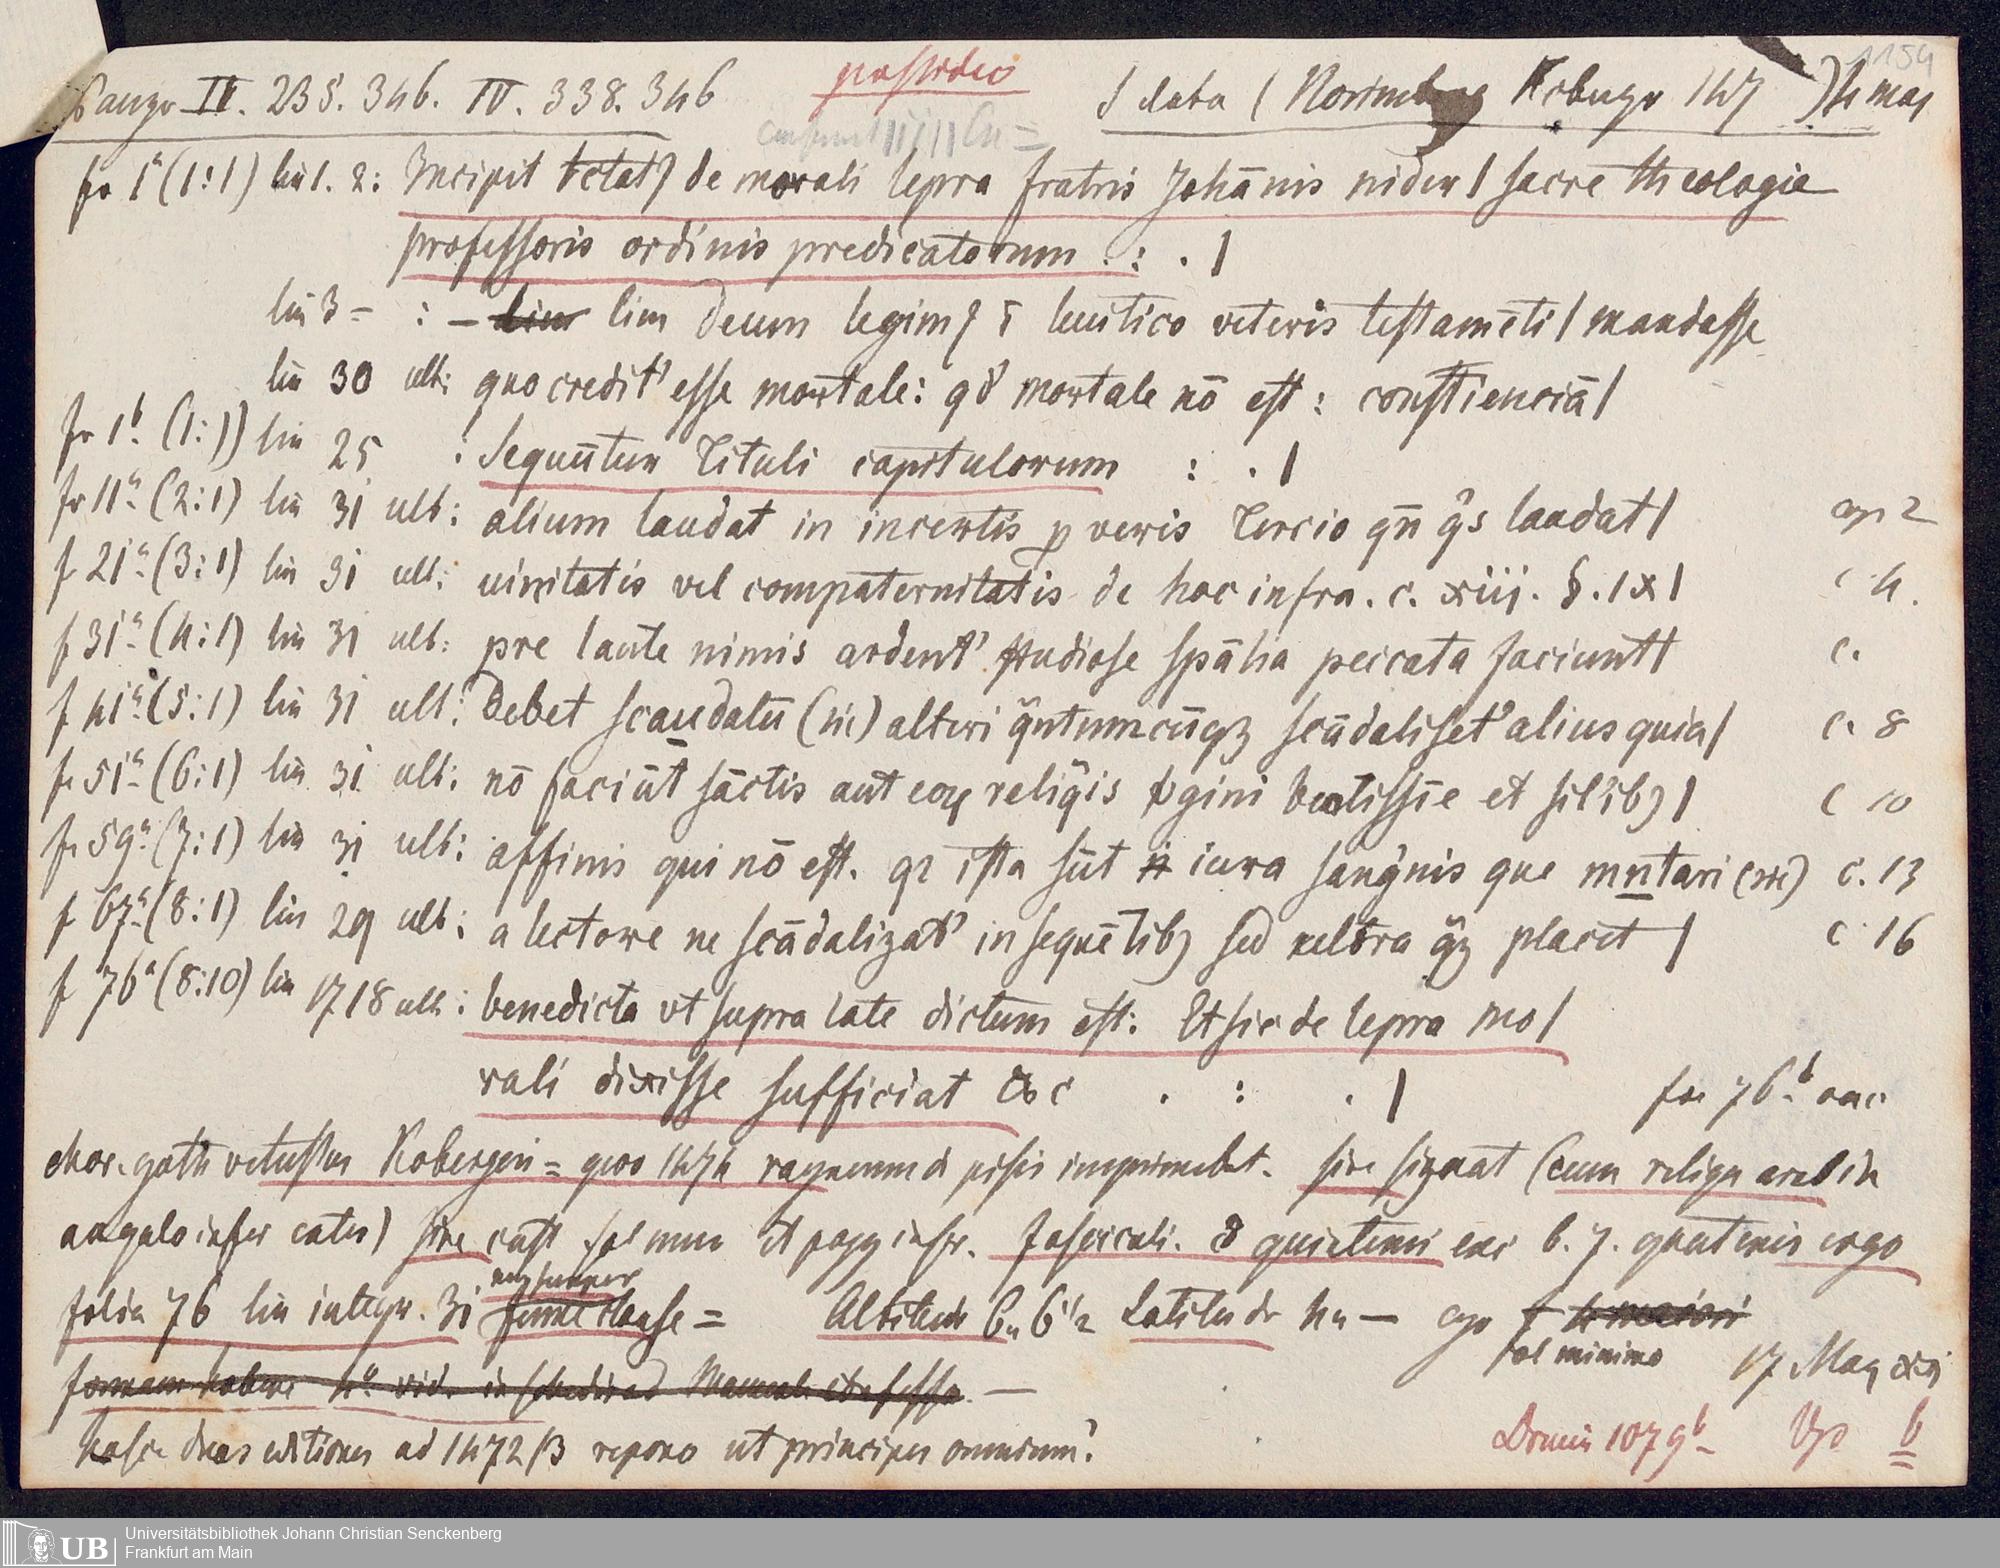 Panzer II. 235. 346. IV. 338. 346
possideo
s data (Norimberg Koburger 147 ) 4 maj
1154
fo 1ª (1:1) lin 1. 2: Incipit tctatꝰ de morali lepra fratris Johānis nider / sacre theologie
professoris ordinis predicatorum . : . /
lin 3 = : — lim Deum legimꝰ ī leuitico veteris testamēti / mandasse
lin 30 ult: quo credit' esse mortale: qď mortale nō est : constienciā /
fo 1b (1:1) lin 25 : Sequūtur Tituli capitulorum : . /
fo 11ª (2:1) lin 31 ult: alium laudat in incertis p veris Tercio qn̄ q̊s laudat / cap 2
f 21ª (3:1) lin 31 ult: uinitatis vel compaternitatis de hoc infra . c. xiij. §. ix / c. 4.
f 31ª (4:1) lin 31 ult: pre laute nimis ardent' studiose spālia peccata faciunt / c.
f 41ª (5:1) lin 31 ult: Debet scaudalū (sic) alteri q̊ntumcūqꝫ scādaliset' alius quia / c. 8
fo 51ª (6:1) lin 31 ult: nō faciūt sāctis aut eoꝝ religis v̊gini beatissīe et sil'ibꝫ / c 10
fo 59ª (7:1) lin 31 ult: affinis qui nō est. qꝛ ista sūt iura sang̊nis que mntari (sic) c. 13
f 67ª (8:1) lin 29 ult: a lectore ne scādalizat' in sequētibꝫ sed neltra q̊ꝫ placet / c 16
f 76ª (8:10) lin 17 18 ult: benedicta vt supra late dictum est: Et sic de lepra mo /
rali dixisse sufficiat &c . : . / fo 76b vac.
char. goth vetustus Kobergeri = quo 1474 raynerium d pisis imprimebat. sine signat (cum reliqu arab in
angulo infer cater) sine cust fol num et pagg infr. fasciculi. 8 quinterni exc 6. 7. quaternis ergo
folia 76 lin integr. 31 non semper ferme clause = Altitudo 6„ 6½ Latitudo 4„ — ergo f 4 maiori
fol minimo 17 Maij xij
formam habere 4° vid. in schedis ad Manuale confessor. —
hasce duas editiones ad 1472/3 repono ut principes omnium?
Draus 1079b Vgo b
Universitätsbibliothek Johann Christian Senckenberg
Frankfurt am Main
UB